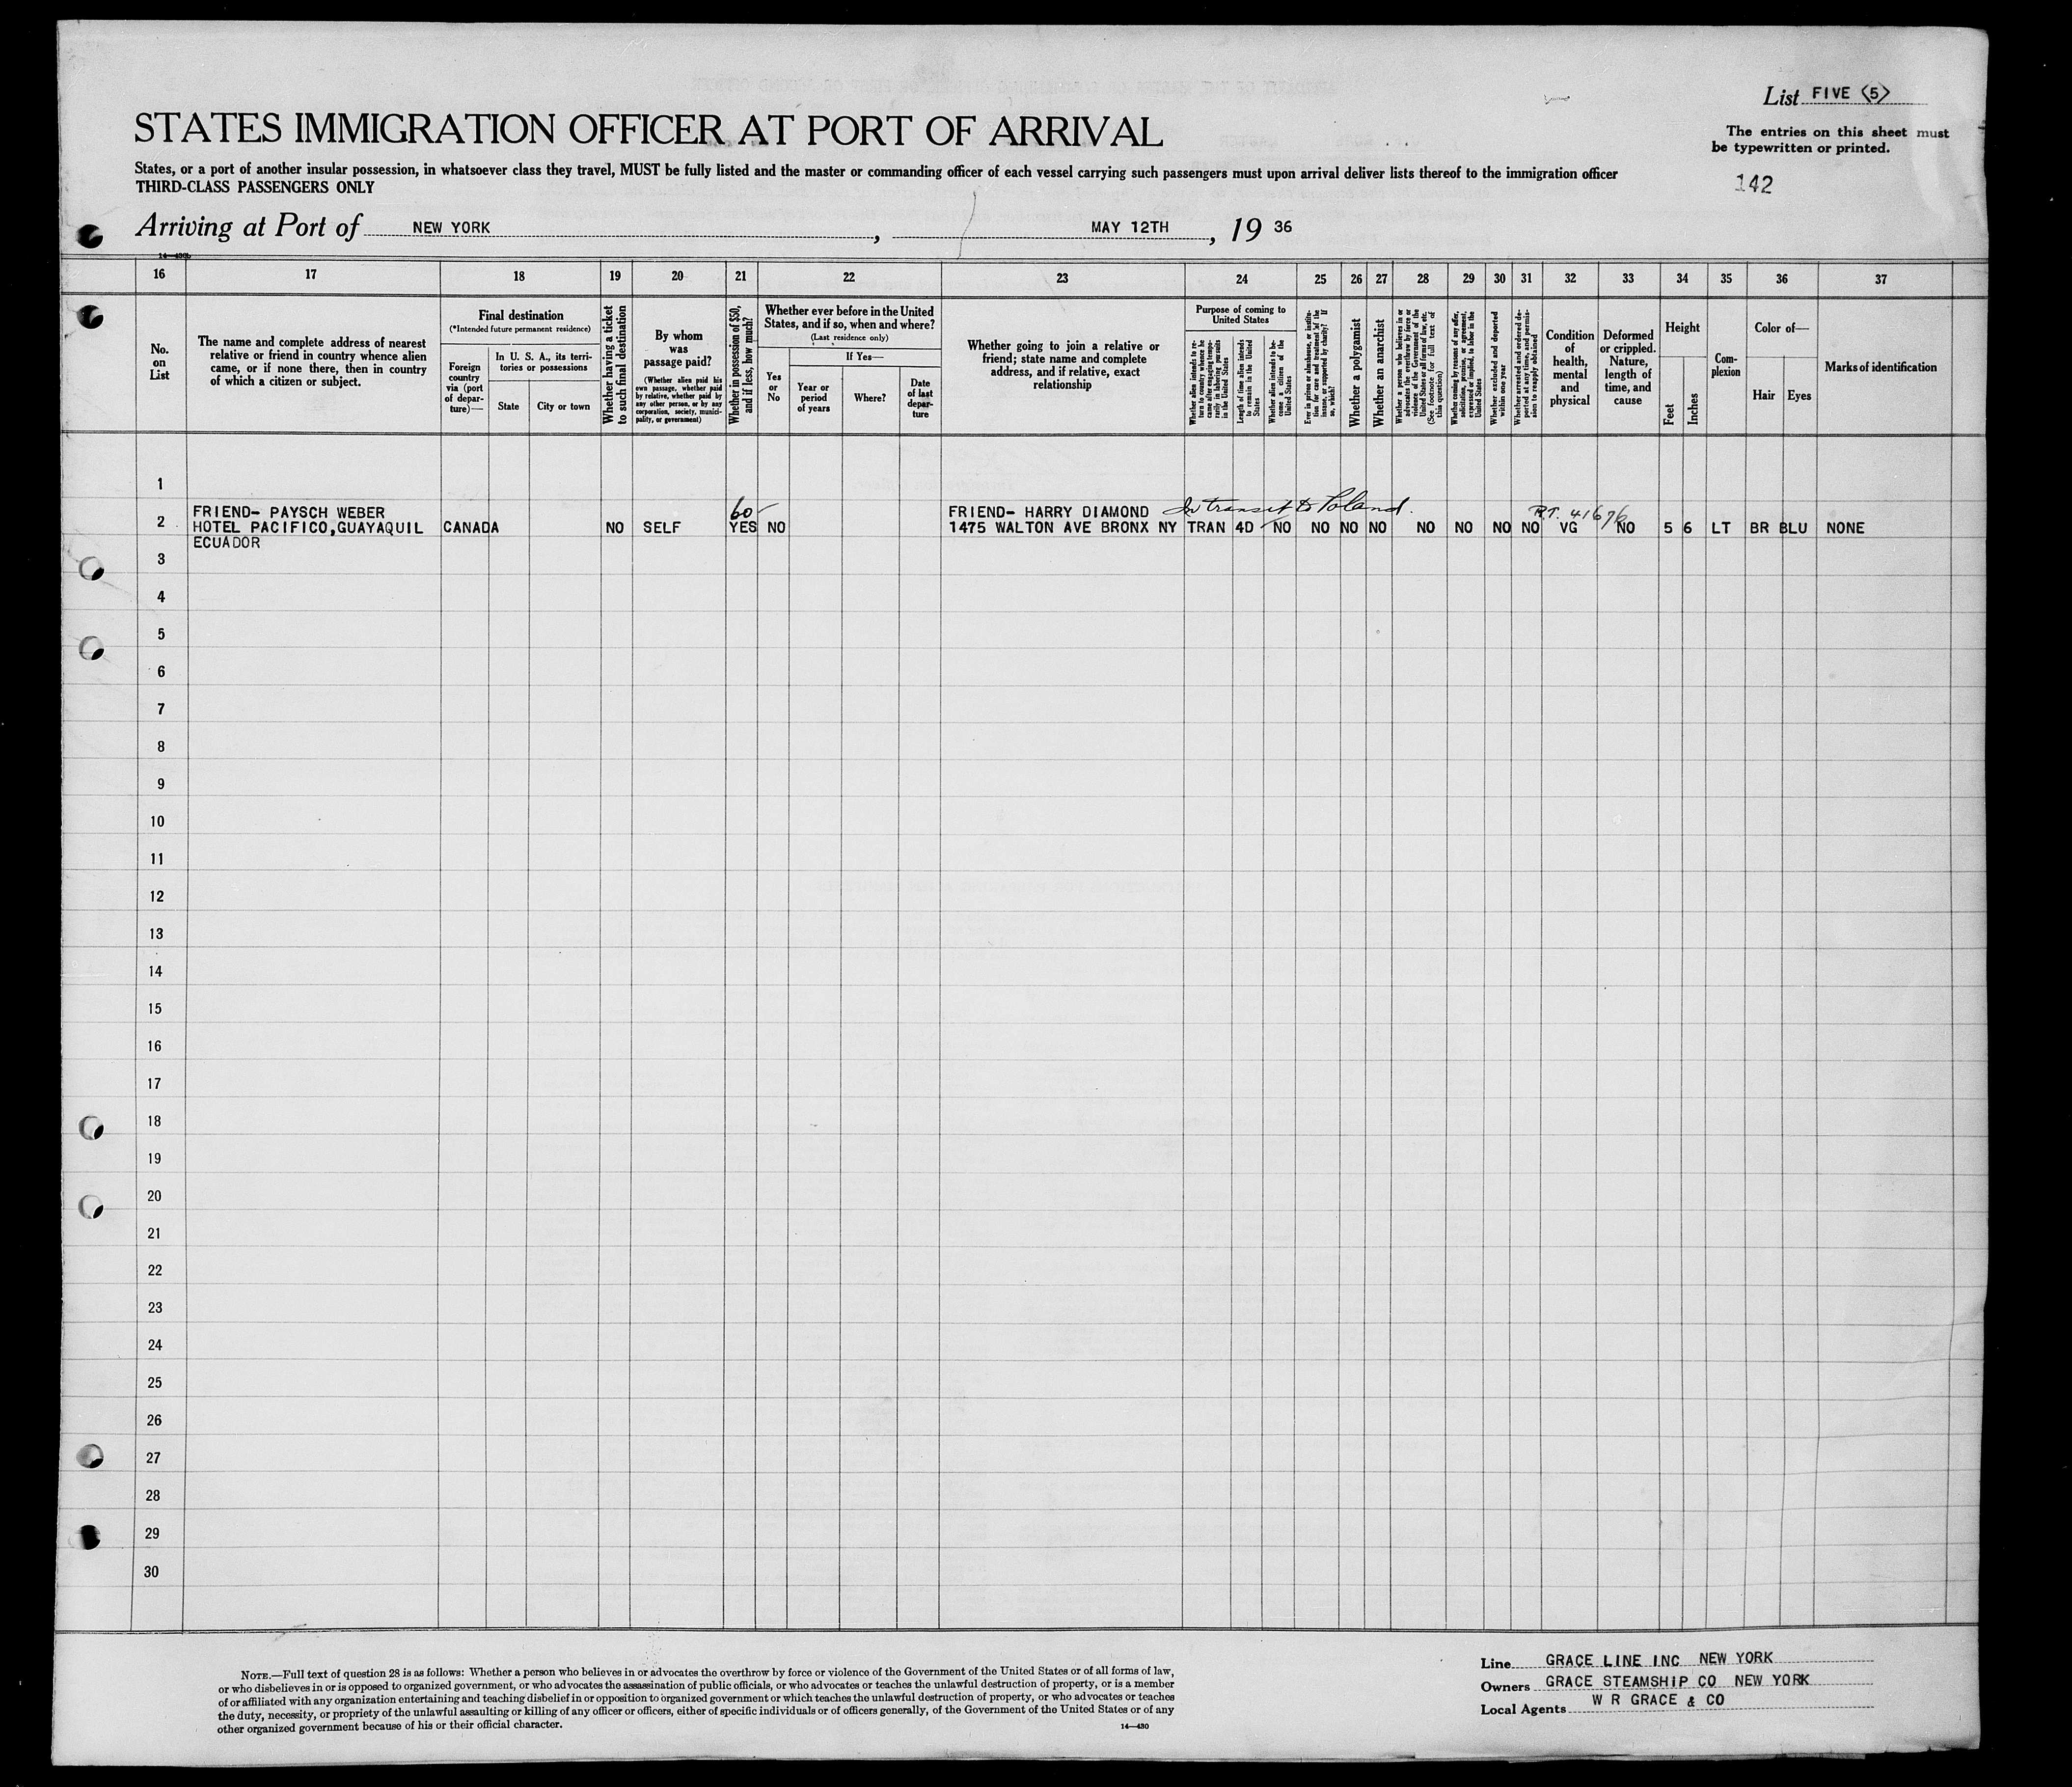 List FIVE (5)
STATES IMMIGRATION OFFICER AT PORT OF ARRIVAL
The entries on this sheet must
be typewritten or printed.
States, or a port of another insular possession, in whatsoever class they travel, MUST be fully listed and the master or commanding officer of each vessel carrying such passengers must upon arrival deliver lists thereof to the immigration officer
THIRD-CLASS PASSENGERS ONLY
142
Arriving at Port of NEW YORK, MAY 12TH, 19 36
14—430b
16 17 18 19 20 21 22 23 24 25 26 27 28 29 30 31 32 33 34 35 36 37
No. on List
The name and complete address of nearest relative or friend in country whence alien came, or if none there, then in country of which a citizen or subject.
Final destination
(*Intended future permanent residence)
Foreign country via (port of departure)—
In U. S. A., its territories or possessions
State
City or town
Whether having a ticket to such final destination
By whom was passage paid?
(Whether alien paid his own passage, whether paid by relative, whether paid by any other person, or by any corporation, society, municipality, or government)
Whether in possession of $50, and if less, how much?
Whether ever before in the United States, and if so, when and where?
(Last residence only)
Yes or No
If Yes—
Year or period of years
Where?
Date of last departure
Whether going to join a relative or friend; state name and complete address, and if relative, exact relationship
Purpose of coming to United States
Whether alien intends to return to country whence he came after engaging temporarily in laboring pursuits in the United States
Length of time alien intends to remain in the United States
Whether alien intends to become a citizen of the United States
Ever in prison or almshouse, or institution for care and treatment of the insane, or supported by charity? If so, which?
Whether a polygamist
Whether an anarchist
Whether a person who believes in or advocates the overthrow by force or violence of the Government of the United States or all forms of law, etc. (See footnote for full text of this question)
Whether coming by reasons of any offer, solicitation, promise, or agreement, expressed or implied, to labor in the United States
Whether excluded and deported within one year
Whether arrested and ordered deported at any time, and permission to reapply obtained
Condition of health, mental and physical
Deformed or crippled. Nature, length of time, and cause
Height
Feet
Inches
Complexion
Color of—
Hair
Eyes
Marks of identification
1
FRIEND- PAYSCH WEBER 60 FRIEND- HARRY DIAMOND In transit to Poland. P.T. 41676
2 HOTEL PACIFICO,GUAYAQUIL CANADA NO SELF YES NO 1475 WALTON AVE BRONX NY TRAN 4D NO NO NO NO NO NO NO NO VG NO 5 6 LT BR BLU NONE
ECUADOR
3
4
5
6
7
8
9
10
11
12
13
14
15
16
17
18
19
20
21
22
23
24
25
26
27
28
29
30
NOTE.—Full text of question 28 is as follows: Whether a person who believes in or advocates the overthrow by force or violence of the Government of the United States or of all forms of law,
or who disbelieves in or is opposed to organized government, or who advocates the assassination of public officials, or who advocates or teaches the unlawful destruction of property, or is a member
of or affiliated with any organization entertaining and teaching disbelief in or opposition to organized government or which teaches the unlawful destruction of property, or who advocates or teaches
the duty, necessity, or propriety of the unlawful assaulting or killing of any officer or officers, either of specific individuals or of officers generally, of the Government of the United States or of any
other organized government because of his or their official character.
14—430
Line GRACE LINE INC NEW YORK
Owners GRACE STEAMSHIP CO NEW YORK
Local Agents W R GRACE & CO